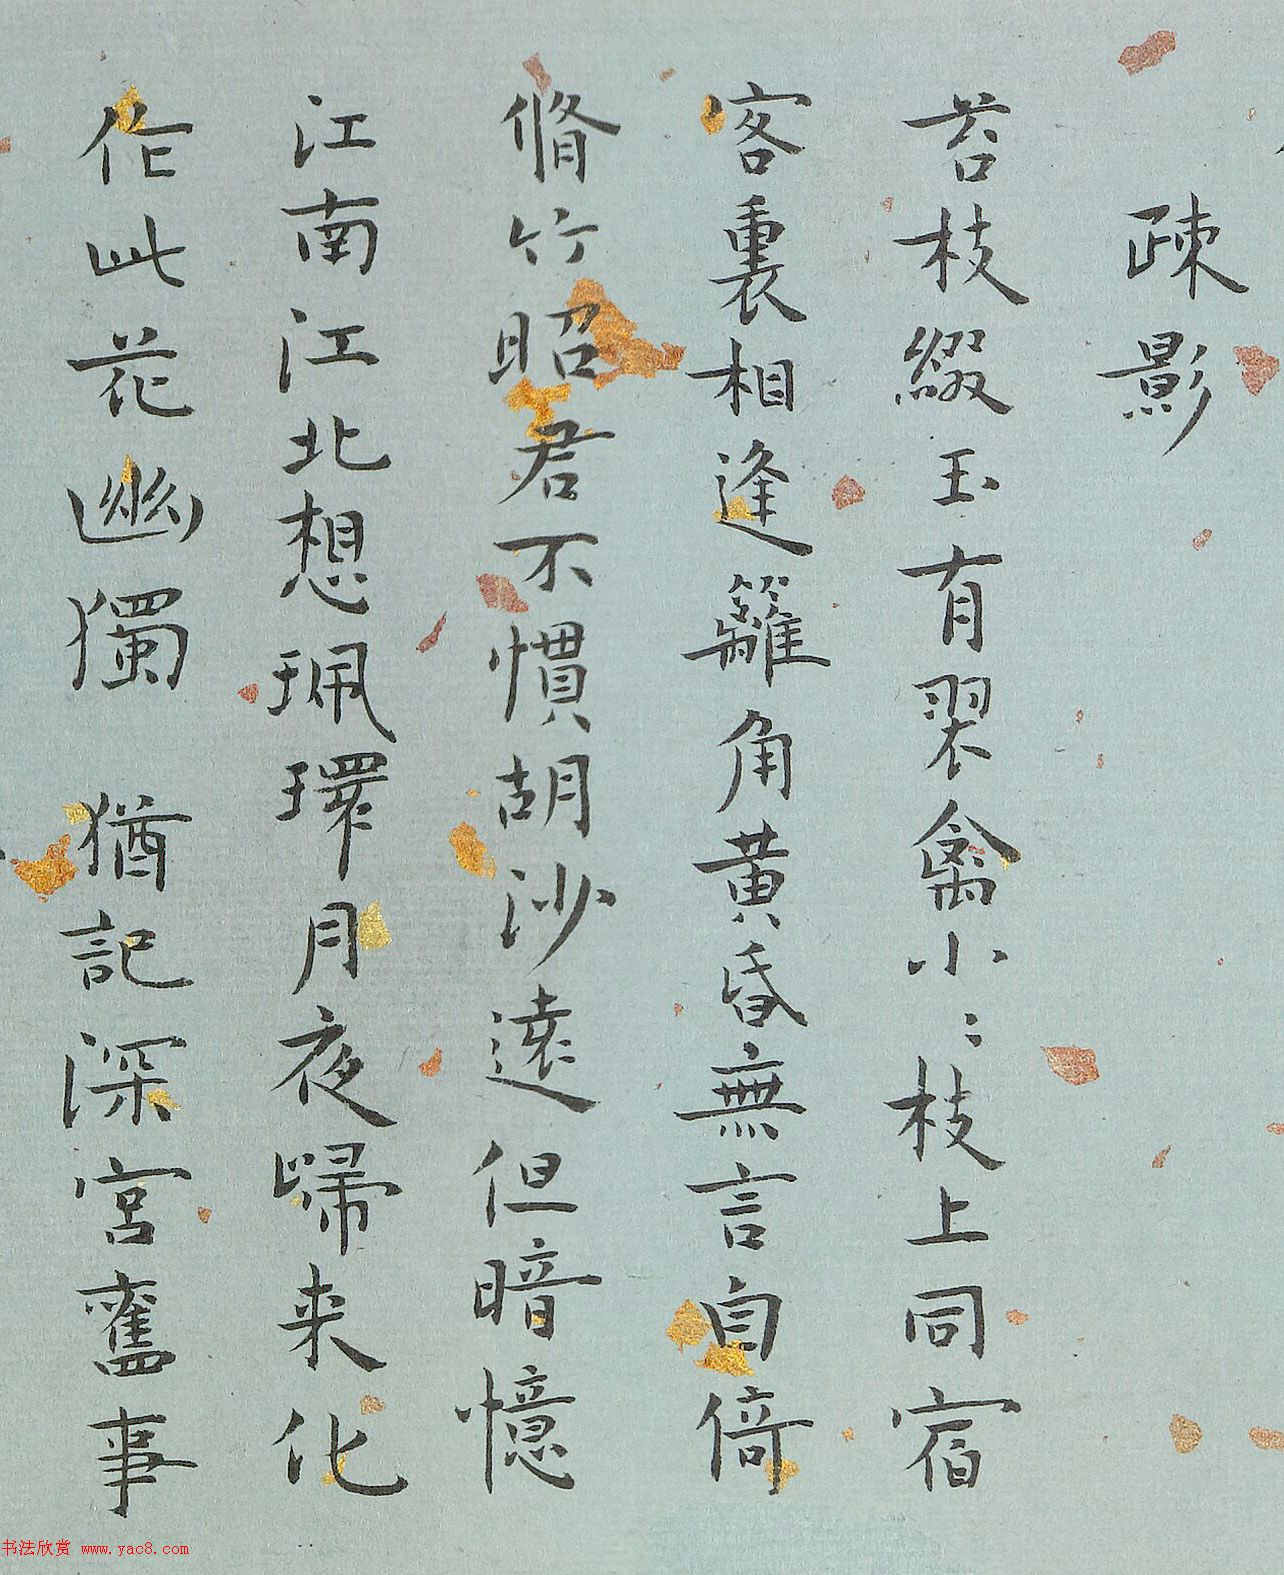 疎影
苔枝綴玉有翠禽小〻枝上同宿
客裏相逢籬角黄昏無言自倚
脩竹昭君不慣胡沙遠但暗憶
江南江北想珮環月夜歸来化
作此花幽獨 猶記深宮舊事
书法欣赏 www.yac8.com